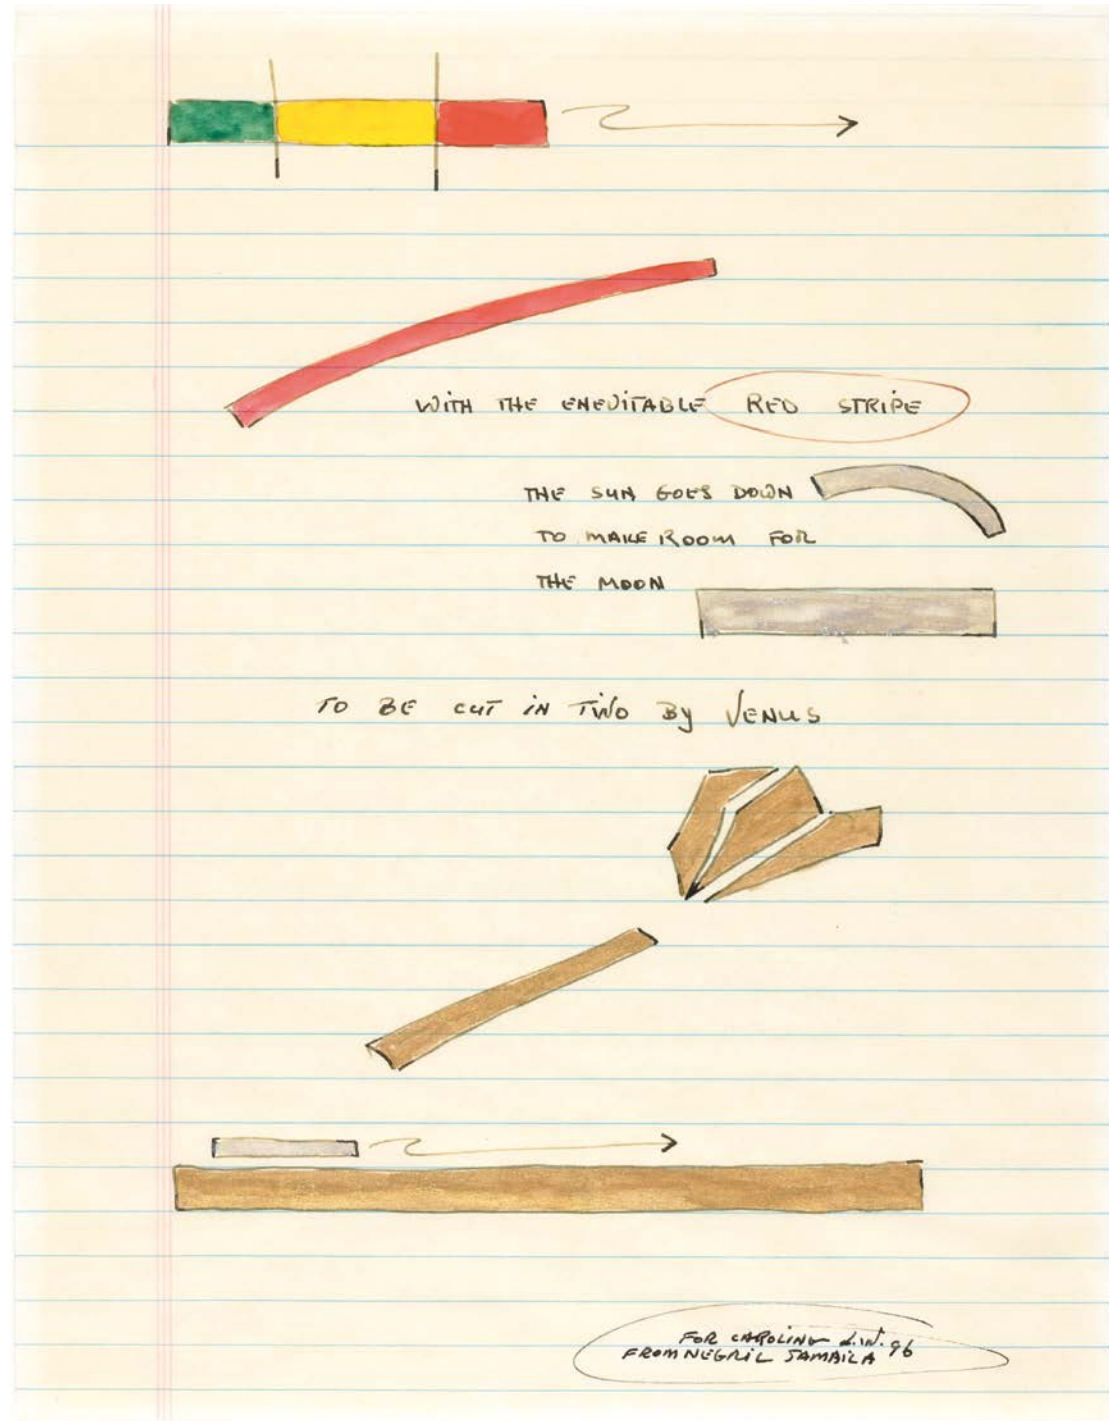 WITH THE ENEVITABLE RED STRIPE
THE SUN GOES DOWN
TO MAKE ROOM FOR
THE MOON
TO BE CUT IN TWO BY VENUS
FOR CAROLINE L.W. 96
FROM NEGRIL JAMAICA